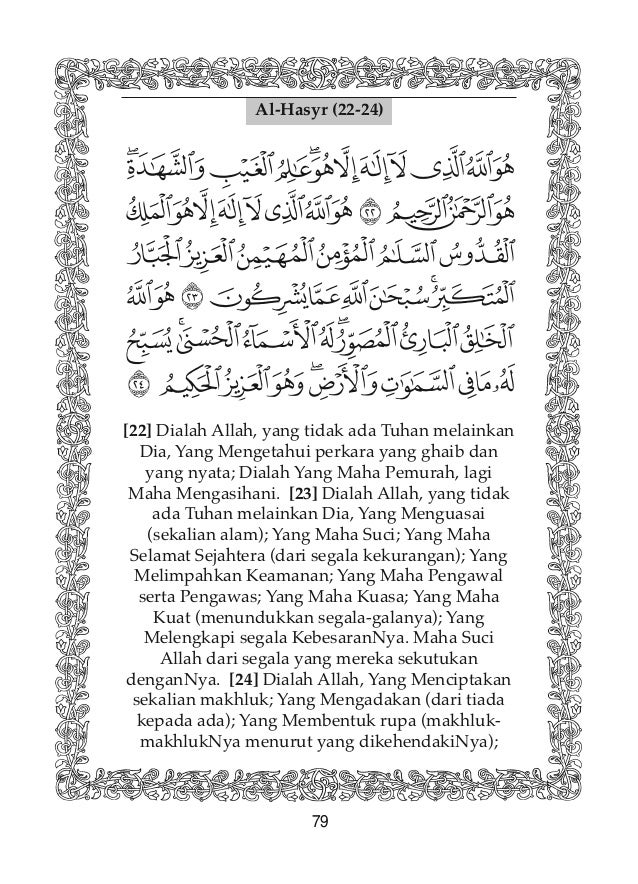 Al-Hasyr (22-24)
هُوَ ٱللَّهُ ٱلَّذِى لَآ إِلَٰهَ إِلَّا هُوَ ۖ عَٰلِمُ ٱلْغَيْبِ وَٱلشَّهَٰدَةِ ۖ
هُوَ ٱلرَّحْمَٰنُ ٱلرَّحِيمُ ٢٢ هُوَ ٱللَّهُ ٱلَّذِى لَآ إِلَٰهَ إِلَّا هُوَ ٱلْمَلِكُ
ٱلْقُدُّوسُ ٱلسَّلَٰمُ ٱلْمُؤْمِنُ ٱلْمُهَيْمِنُ ٱلْعَزِيزُ ٱلْجَبَّارُ
ٱلْمُتَكَبِّرُ ۚ سُبْحَٰنَ ٱللَّهِ عَمَّا يُشْرِكُونَ ٢٣ هُوَ ٱللَّهُ
ٱلْخَٰلِقُ ٱلْبَارِئُ ٱلْمُصَوِّرُ ۖ لَهُ ٱلْأَسْمَآءُ ٱلْحُسْنَىٰ ۚ يُسَبِّحُ
لَهُۥ مَا فِى ٱلسَّمَٰوَٰتِ وَٱلْأَرْضِ ۖ وَهُوَ ٱلْعَزِيزُ ٱلْحَكِيمُ ٢٤
[22] Dialah Allah, yang tidak ada Tuhan melainkan
Dia, Yang Mengetahui perkara yang ghaib dan
yang nyata; Dialah Yang Maha Pemurah, lagi
Maha Mengasihani. [23] Dialah Allah, yang tidak
ada Tuhan melainkan Dia, Yang Menguasai
(sekalian alam); Yang Maha Suci; Yang Maha
Selamat Sejahtera (dari segala kekurangan); Yang
Melimpahkan Keamanan; Yang Maha Pengawal
serta Pengawas; Yang Maha Kuasa; Yang Maha
Kuat (menundukkan segala-galanya); Yang
Melengkapi segala KebesaranNya. Maha Suci
Allah dari segala yang mereka sekutukan
denganNya. [24] Dialah Allah, Yang Menciptakan
sekalian makhluk; Yang Mengadakan (dari tiada
kepada ada); Yang Membentuk rupa (makhluk-
makhlukNya menurut yang dikehendakiNya);
79